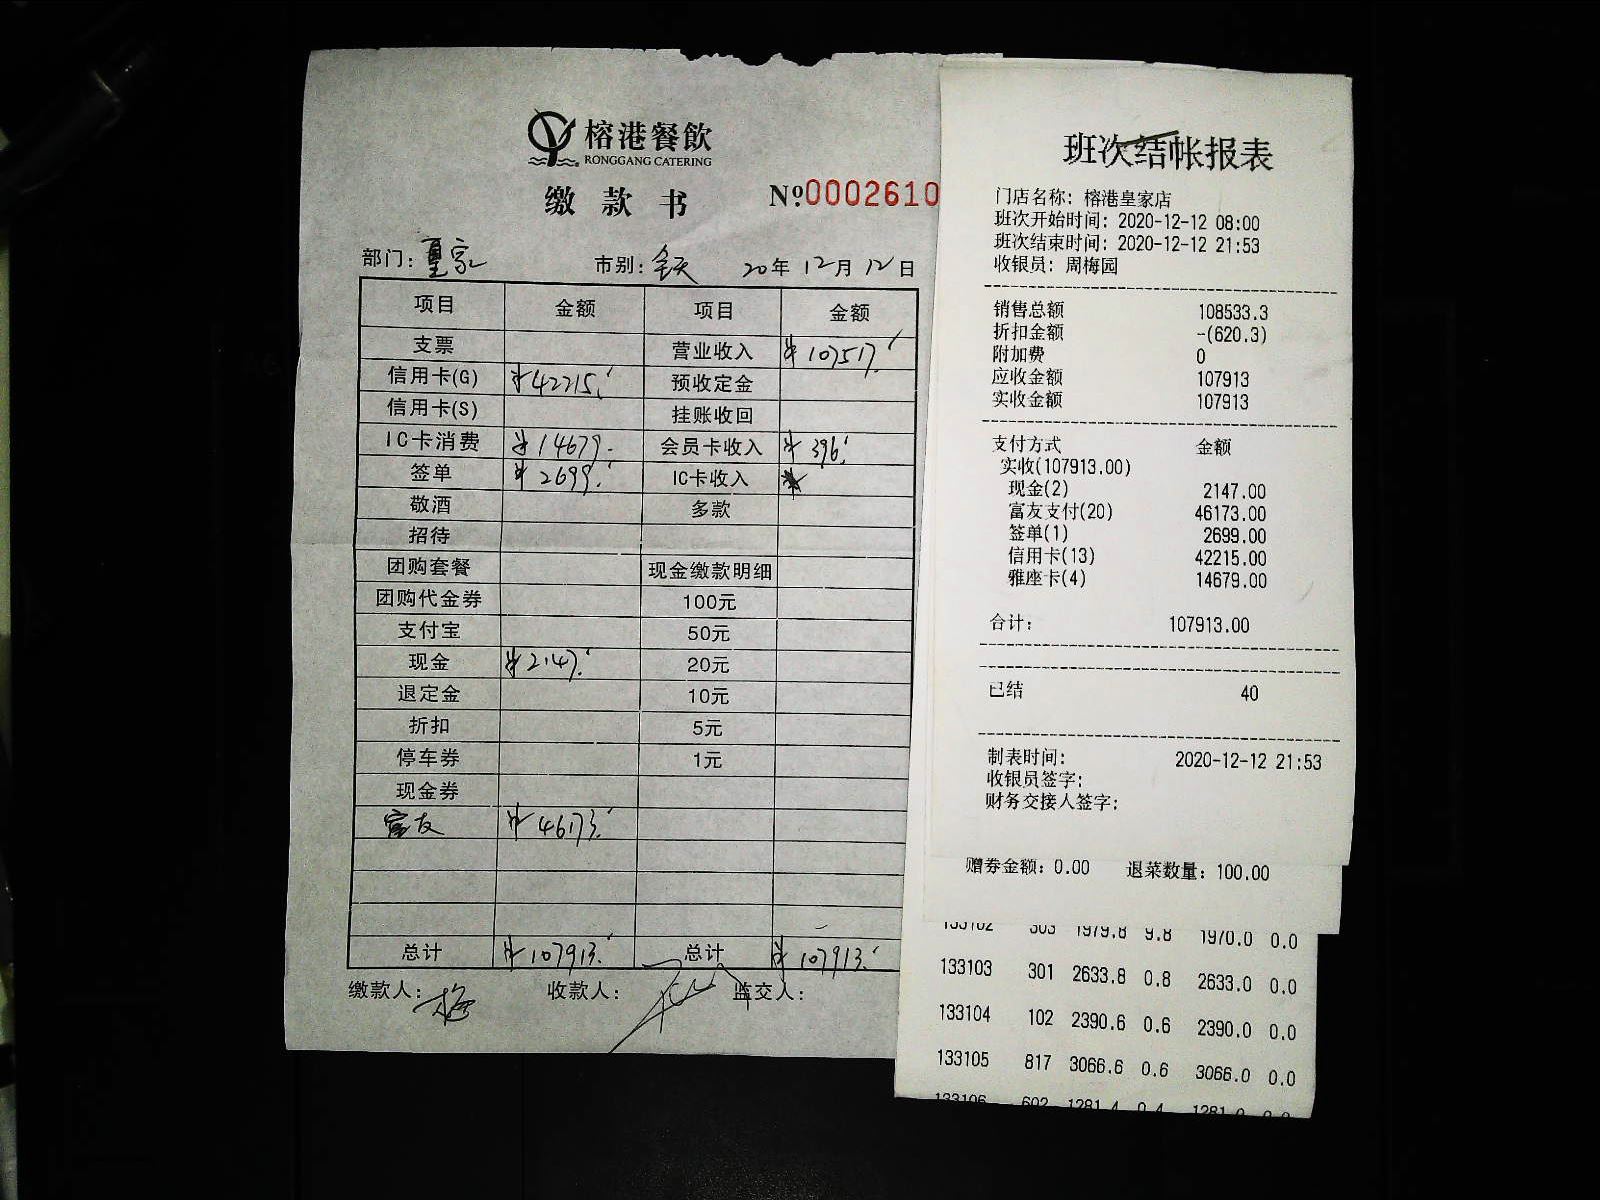 榕港餐飲
RONGGANG CATERING
缴款书
Nº0002610
部门：皇家 市别：全天 20年12月12日
项目 金额 项目 金额
支票 营业收入 ¥107517.
信用卡(G) ¥42215. 预收定金
信用卡(S) 挂账收回
IC卡消费 ¥14679. 会员卡收入 ¥396.
签单 ¥2699. IC卡收入
敬酒 多款
招待
团购套餐 现金缴款明细
团购代金券 100元
支付宝 50元
现金 ¥2147. 20元
退定金 10元
折扣 5元
停车券 1元
现金券
富友 ¥46173.
总计 ¥107913. 总计 ¥107913.
缴款人：梅 收款人： 监交人：
班次结帐报表
门店名称：榕港皇家店
班次开始时间：2020-12-12 08:00
班次结束时间：2020-12-12 21:53
收银员：周梅园
销售总额 108533.3
折扣金额 -(620.3)
附加费 0
应收金额 107913
实收金额 107913
支付方式 金额
实收(107913.00)
现金(2) 2147.00
富友支付(20) 46173.00
签单(1) 2699.00
信用卡(13) 42215.00
雅座卡(4) 14679.00
合计： 107913.00
已结 40
制表时间： 2020-12-12 21:53
收银员签字：
财务交接人签字：
赠券金额：0.00 退菜数量：100.00
133102 303 1979.8 9.8 1970.0 0.0
133103 301 2633.8 0.8 2633.0 0.0
133104 102 2390.6 0.6 2390.0 0.0
133105 817 3066.6 0.6 3066.0 0.0
133106 602 1281.4 0.4 1281.0 0.0